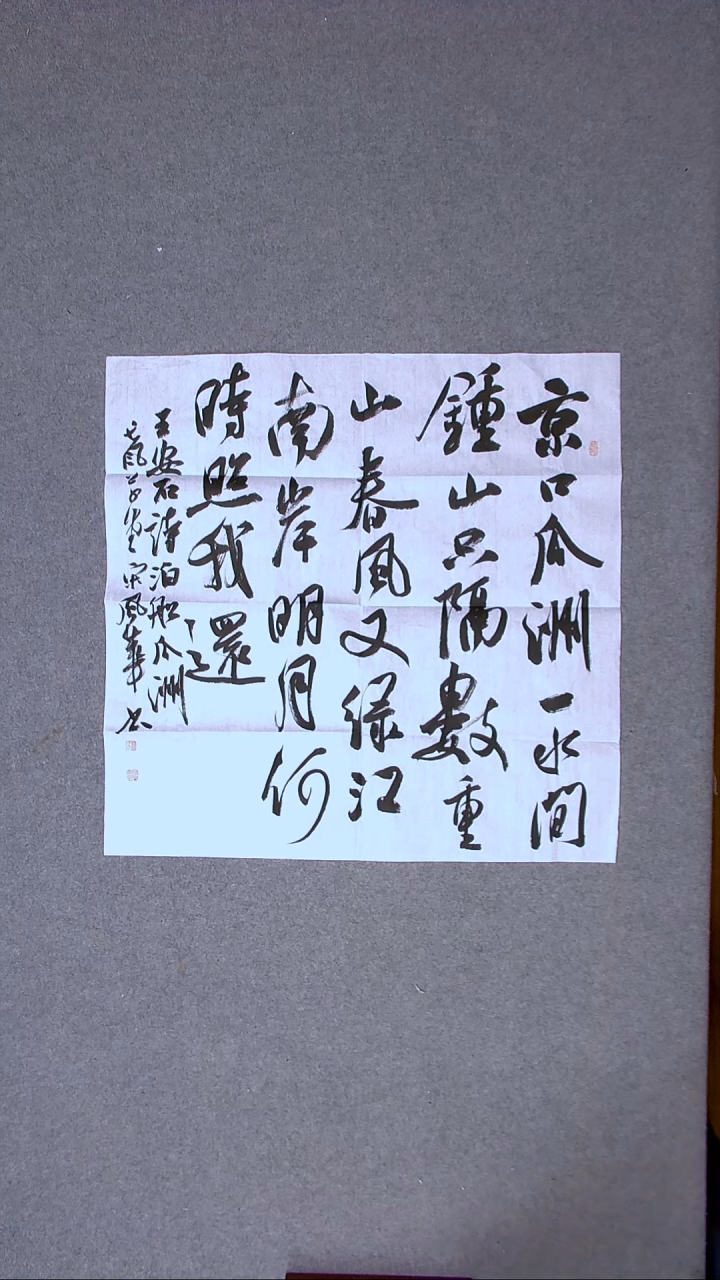 京口瓜洲一水間
鍾山只隔數重
山春風又绿江
南岸明月何
時照我還
王安石詩泊船瓜洲
宋風華书